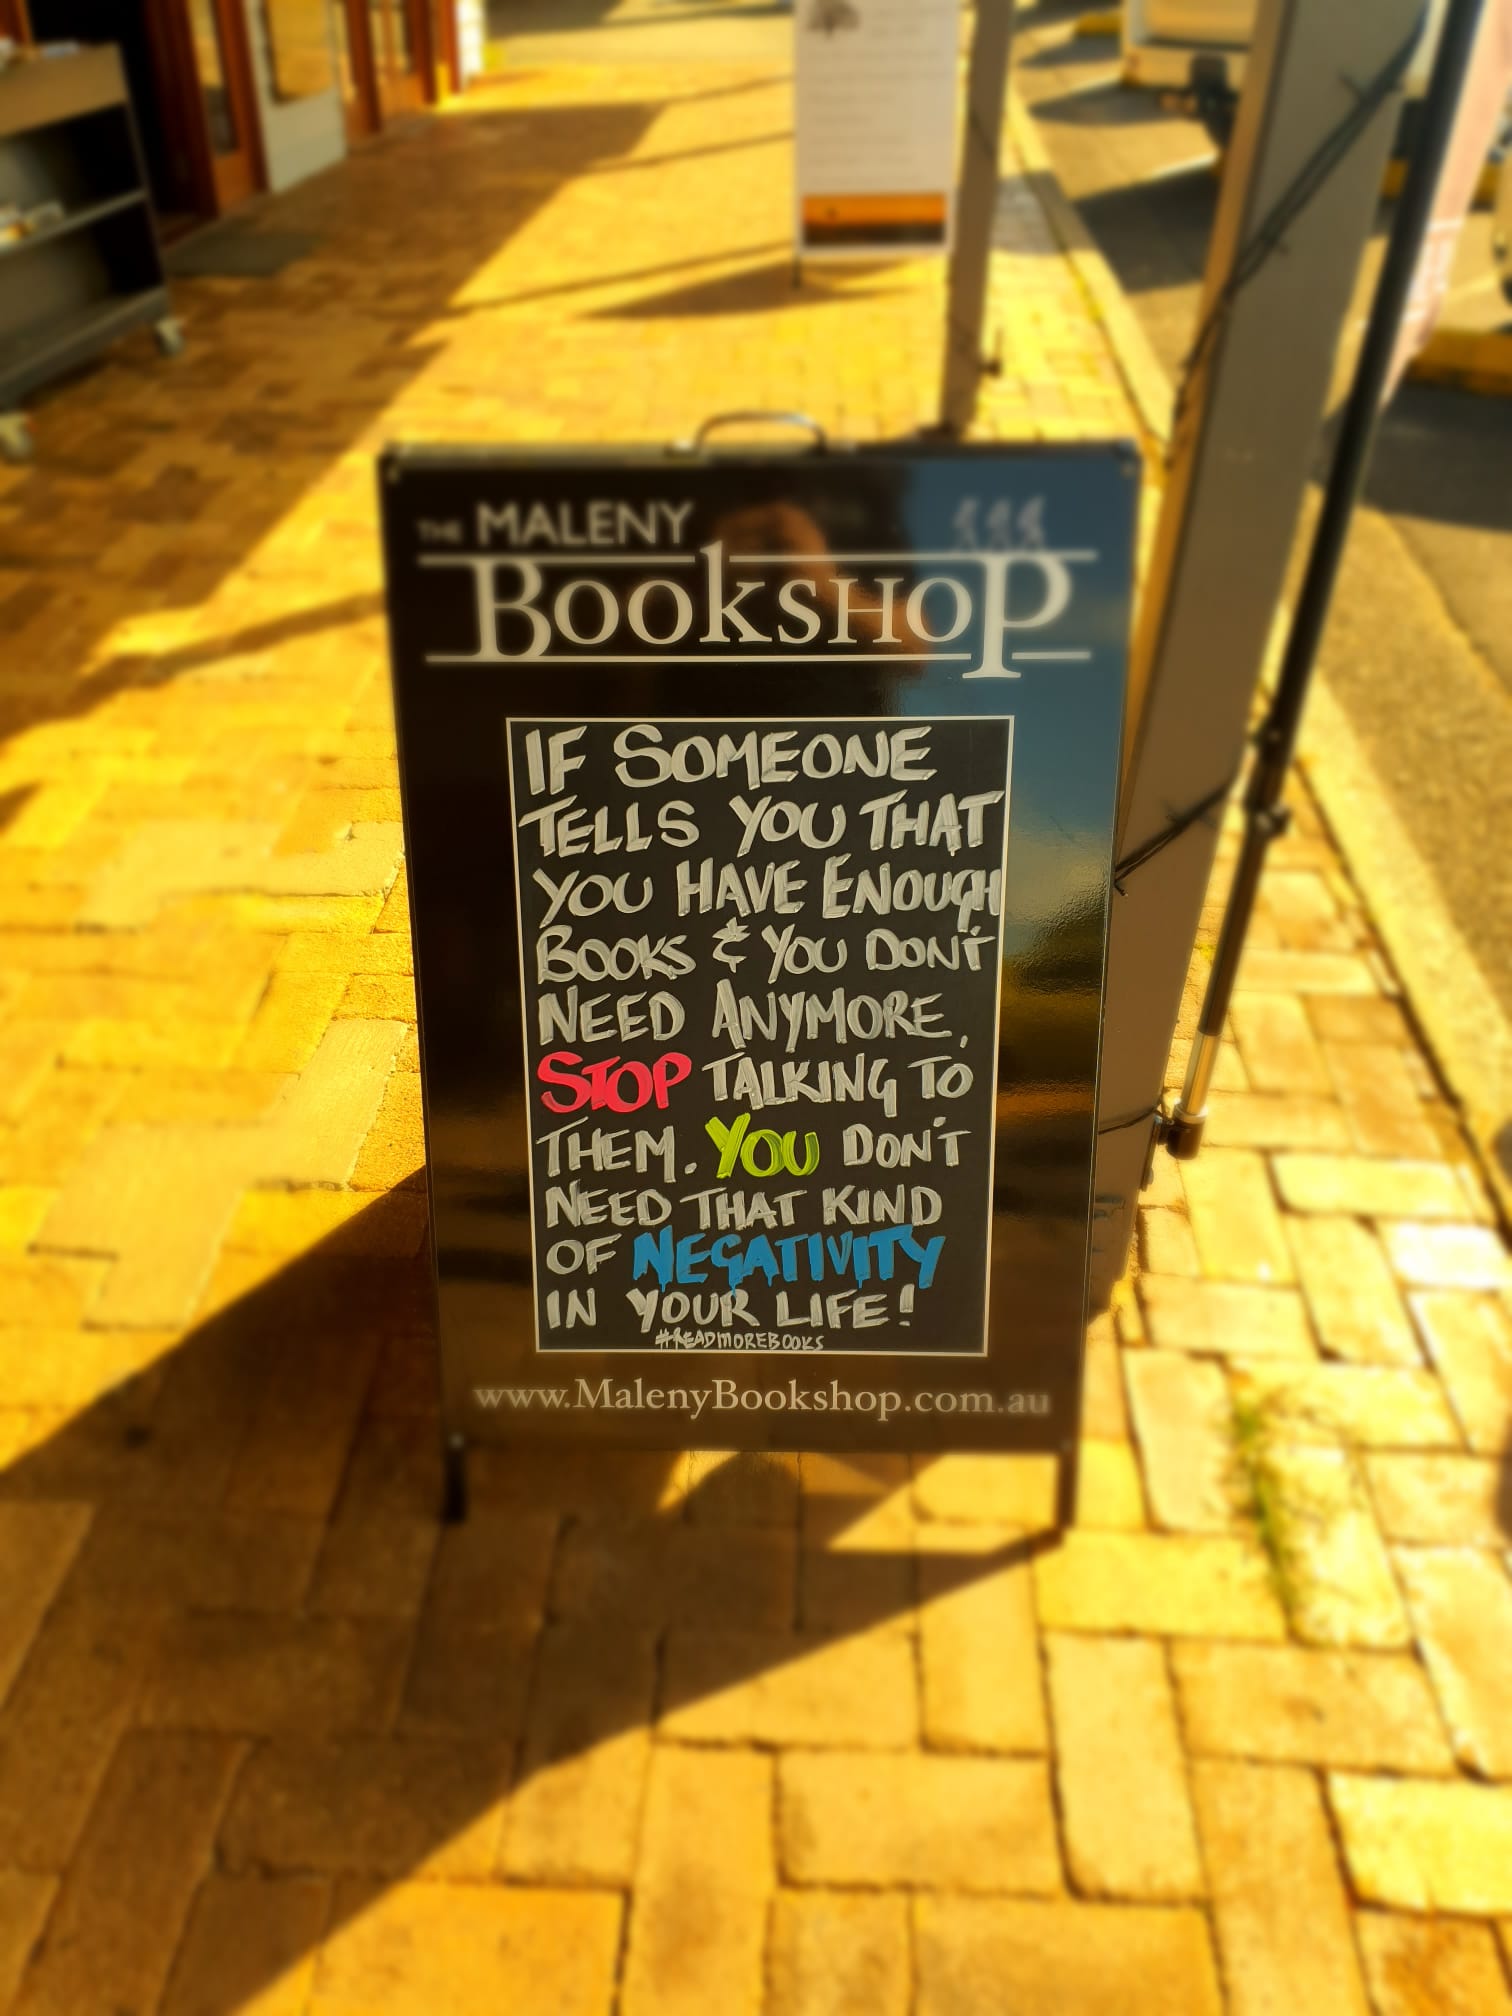 THE MALENY
BOOKSHOP
IF SOMEONE
TELLS YOU THAT
YOU HAVE ENOUGH
BOOKS & YOU DON'T
NEED ANYMORE,
STOP TALKING TO
THEM. YOU DON'T
NEED THAT KIND
OF NEGATIVITY
IN YOUR LIFE!
#READMOREBOOKS
www.MalenyBookshop.com.au